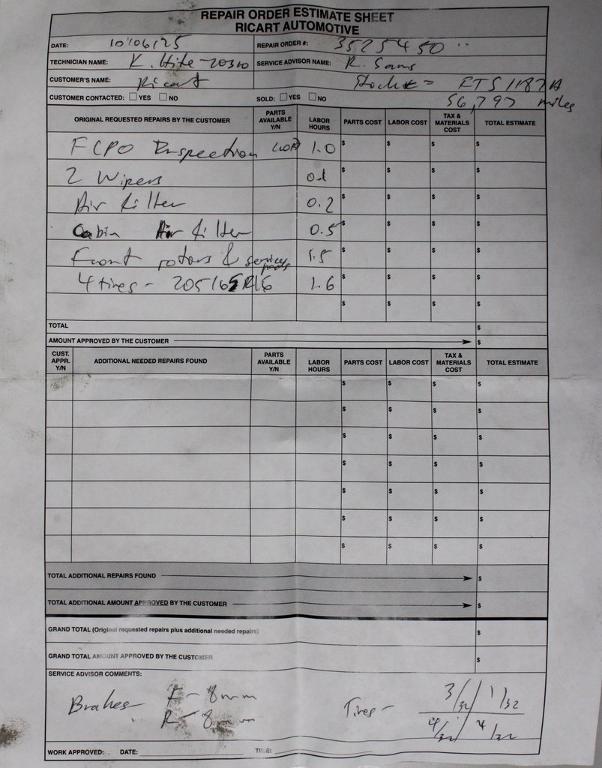 REPAIR ORDER ESTIMATE SHEET
RICART AUTOMOTIVE
DATE: 10/06/25 REPAIR ORDER #: 3525450
TECHNICIAN NAME: K. Hite - 20310 SERVICE ADVISOR NAME: R. Sams
CUSTOMER'S NAME: Ricart Stock# = ETS1187A
CUSTOMER CONTACTED: YES NO SOLD: YES NO 56,797 miles
ORIGINAL REQUESTED REPAIRS BY THE CUSTOMER PARTS AVAILABLE Y/N LABOR HOURS PARTS COST LABOR COST TAX & MATERIALS COST TOTAL ESTIMATE
FCPO Inspection 1.0 $ $ $ $
2 Wipers 0.1 $ $ $ $
Air filter 0.2 $ $ $ $
Cabin Air filter 0.5 $ $ $ $
Front rotors & service pads 1.5 $ $ $ $
4 tires - 205/65R16 1.6 $ $ $ $
$ $ $ $
TOTAL $
AMOUNT APPROVED BY THE CUSTOMER $
CUST. APPR. Y/N ADDITIONAL NEEDED REPAIRS FOUND PARTS AVAILABLE Y/N LABOR HOURS PARTS COST LABOR COST TAX & MATERIALS COST TOTAL ESTIMATE
$ $ $ $
$ $ $ $
$ $ $ $
$ $ $ $
$ $ $ $
$ $ $ $
$ $ $ $
TOTAL ADDITIONAL REPAIRS FOUND $
TOTAL ADDITIONAL AMOUNT APPROVED BY THE CUSTOMER $
GRAND TOTAL (Original requested repairs plus additional needed repairs) $
GRAND TOTAL AMOUNT APPROVED BY THE CUSTOMER $
SERVICE ADVISOR COMMENTS:
Brakes F - 8mm Tires - 3/32 1/32
R - 8mm 4/32 4/32
WORK APPROVED: DATE: TIME: